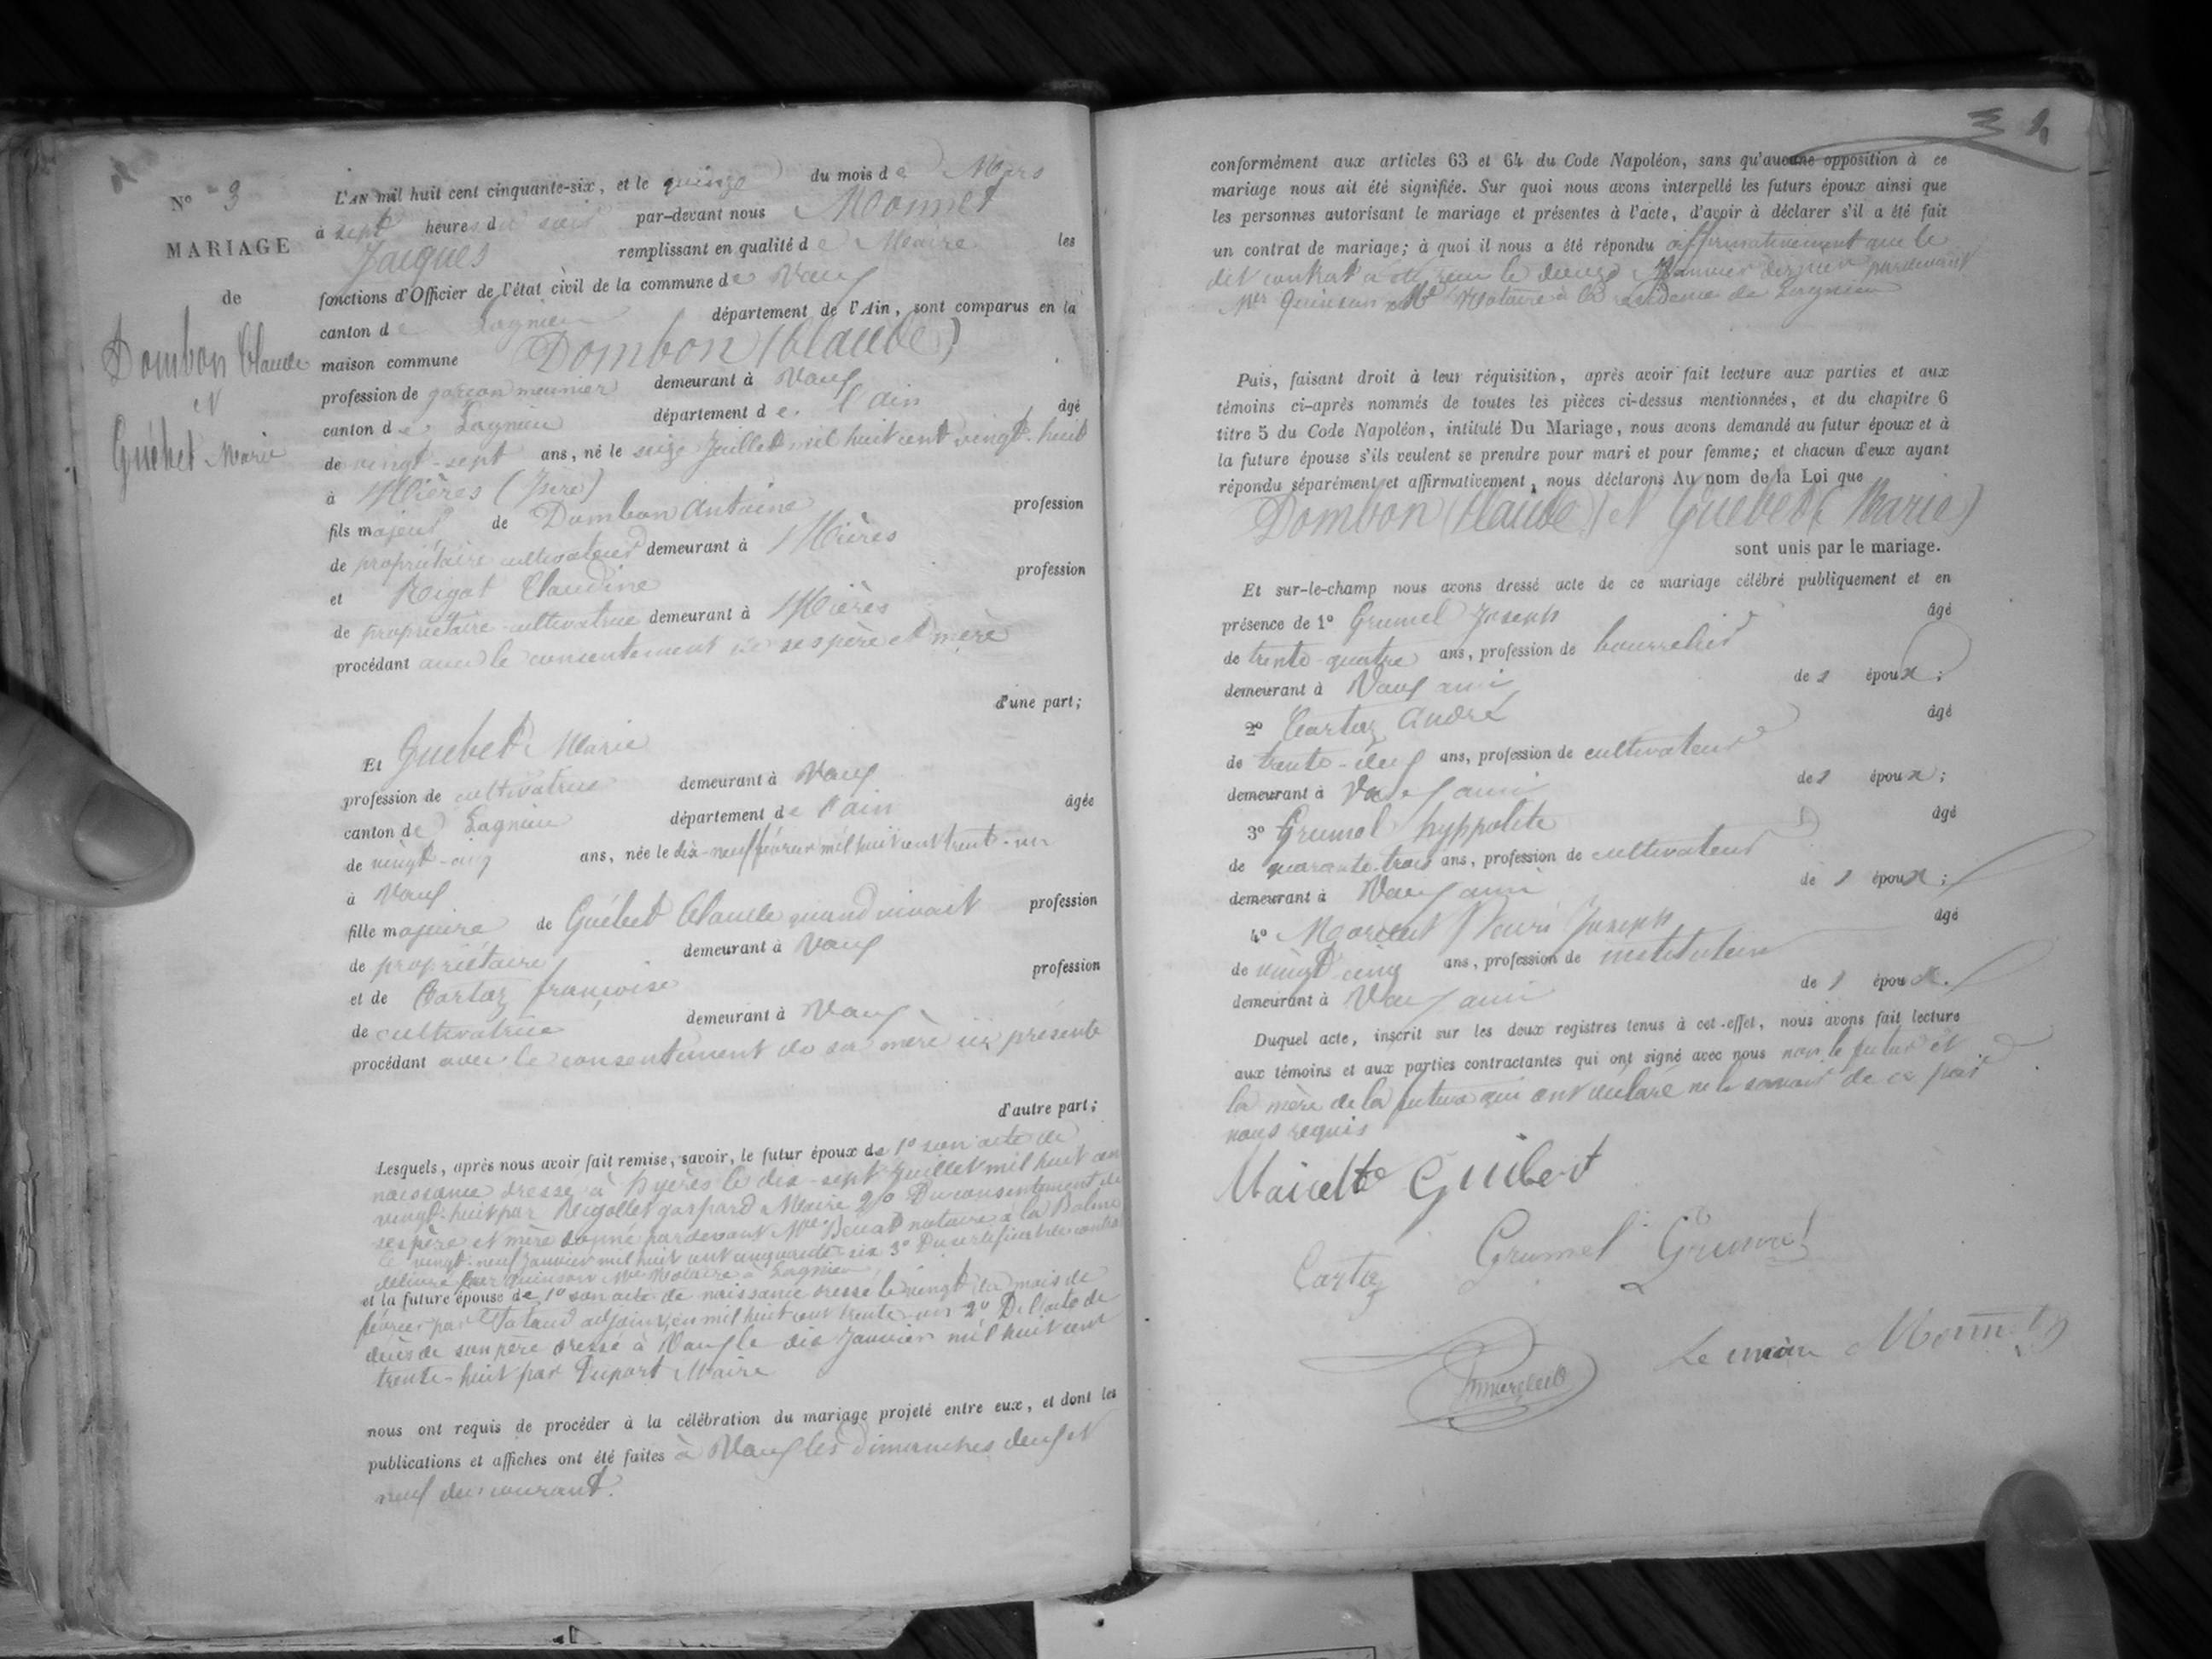 N° 3
MARIAGE
de
Dombon Claude
et
Guébet Marie
L'AN mil huit cent cinquante-six, et le quinze du mois de Mars
à sept heures du soir par-devant nous Monnet
Jacques remplissant en qualité de Maire les
fonctions d'Officier de l'état civil de la commune de Vaux
canton de Lagnieu département de l'Ain, sont comparus en la
maison commune Dombon (Claude)
profession de garçon meunier demeurant à Vaux
canton de Lagnieu département de l'ain âgé
de vingt-sept ans, né le seize Juillet mil huit cent vingt-huit
à hières (Isère)
fils majeur de Dombon Antoine profession
de propriétaire cultivateur demeurant à hières
et Rigot Claudine profession
de propriétaire cultivatrice demeurant à hières
procédant avec le consentement de ses père et mère
d'une part;
Et Guebet Marie
profession de cultivatrice demeurant à Vaux
canton de Lagnieu département de l'ain âgée
de vingt-cinq ans, née le dix-neuf février mil huit cent trente-un
à Vaux
fille majeure de Guébet Claude quand vivait profession
de propriétaire demeurant à Vaux
et de Cartaz françoise profession
de cultivatrice demeurant à Vaux
procédant avec le consentement de sa mère ici présente
d'autre part;
Lesquels, après nous avoir fait remise, savoir, le futur époux de 1° son acte de
naissance dressé à hyères le dix-sept Juillet mil huit cent
vingt-huit par Rigollet gaspard Maire 2° Du consentement de
ses père et mère donné pardevant Me notaire à la Balme
le vingt-neuf Janvier mil huit cent cinquante six 3° Du certificat de contrat
délivré par Quinson Me Notaire à Lagnieu
et la future épouse de 1° son acte de naissance dressé le vingt du mois de
février par adjoint, en mil huit cent trente-un 2° De l'acte de
décès de son père dressé à Vaux le dix Janvier mil huit cent
trente-huit par Duport Maire
nous ont requis de procéder à la célébration du mariage projeté entre eux, et dont les
publications et affiches ont été faites à Vaux les Dimanches deux et
neuf du courant.
conformément aux articles 63 et 64 du Code Napoléon, sans qu'aucune opposition à ce
mariage nous ait été signifiée. Sur quoi nous avons interpellé les futurs époux ainsi que
les personnes autorisant le mariage et présentes à l'acte, d'avoir à déclarer s'il a été fait
un contrat de mariage; à quoi il nous a été répondu affirmativement que le
dit contrat a été reçu le Janvier dernier pardevant
Quinson Notaire à la résidence de Lagnieu
Puis, faisant droit à leur réquisition, après avoir fait lecture aux parties et aux
témoins ci-après nommés de toutes les pièces ci-dessus mentionnées, et du chapitre 6
titre 5 du Code Napoléon, intitulé Du Mariage, nous avons demandé au futur époux et à
la future épouse s'ils veulent se prendre pour mari et pour femme; et chacun d'eux ayant
répondu séparément et affirmativement, nous déclarons Au nom de la Loi que
Dombon (Claude) et Guebet (Marie)
sont unis par le mariage.
Et sur-le-champ nous avons dressé acte de ce mariage célébré publiquement et en
présence de 1° Grumel Joseph âgé
de trente-quatre ans, profession de bourrelier
demeurant à Vaux ami des époux;
2° Cartaz André âgé
de trente-deux ans, profession de cultivateur
demeurant à Vaux ami des époux;
3° Grumel hyppolite âgé
de quarante-trois ans, profession de cultivateur
demeurant à Vaux ami des époux;
4° Joseph âgé
de vingt-cinq ans, profession de instituteur
demeurant à Vaux ami des époux.
Duquel acte, inscrit sur les deux registres tenus à cet effet, nous avons fait lecture
aux témoins et aux parties contractantes qui ont signé avec nous non le futur et
la mère de la future qui ont déclaré ne le savoir de ce fait
nous requis
Guibert
Cartaz
Grumel Grumel
Le maire Monnet